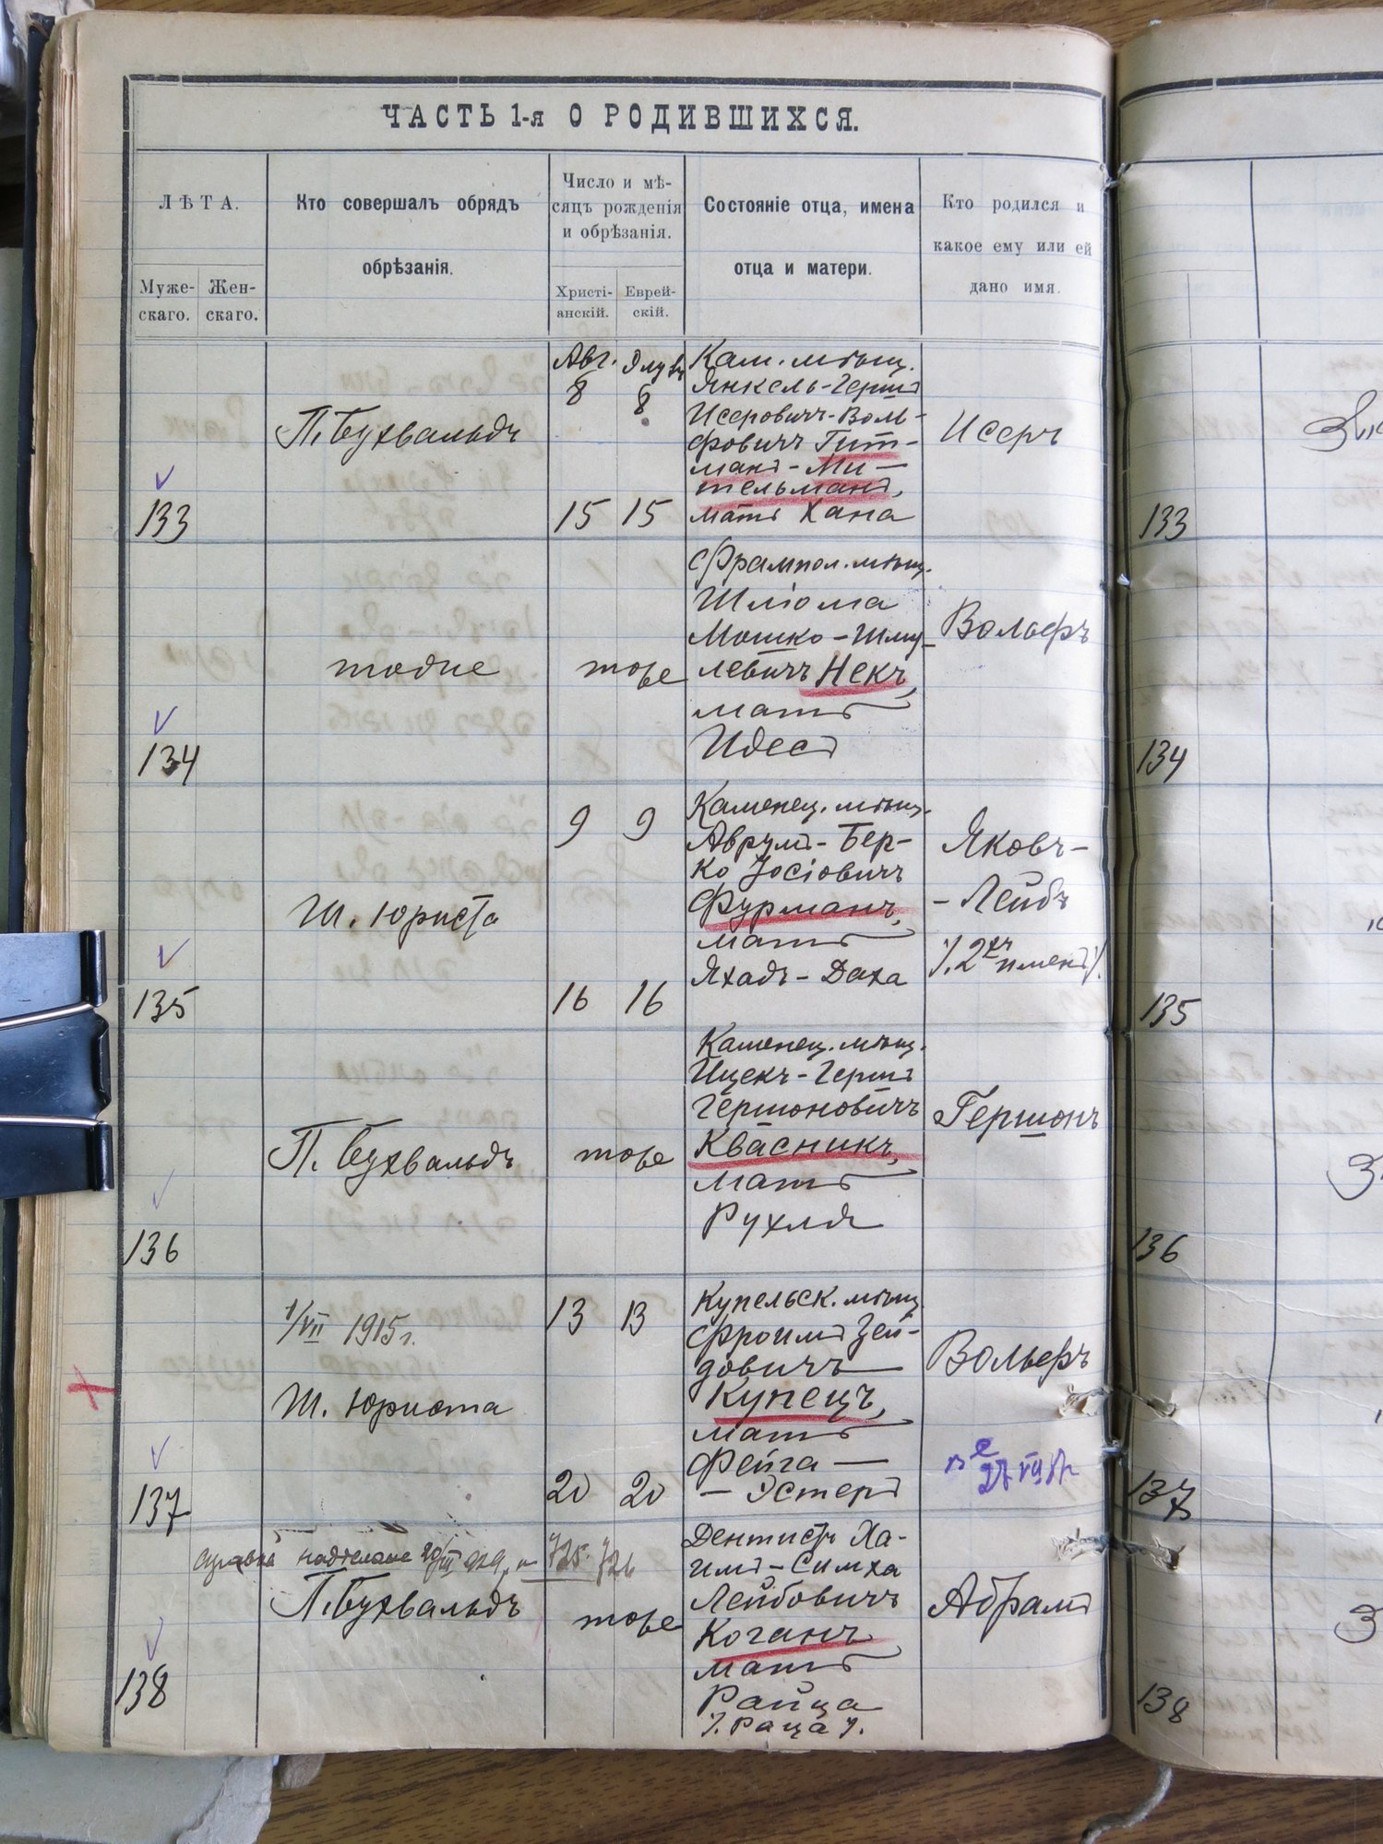 ЧАСТЬ 1-я О РОДИВШИХСЯ.
ЛѢТА.
Муже-
скаго.
Жен-
скаго.
Кто совершалъ обрядъ
обрѣзанія.
Число и мѣ-
сяцъ рожденія
и обрѣзанія.
Христі-
анскій.
Еврей-
скій.
Состояніе отца, имена
отца и матери.
Кто родился и
какое ему или ей
дано имя.
133
П. Бухвальдъ
Авг.
8
8
15 15
Кам. мѣщ.
Янкель-Гершъ
Исеровичъ-Воль-
фовичъ Гит-
манъ-Ми-
тельманъ,
мать Хана
Исеръ
133
134
тоже
тоже
Фрампол. мѣщ.
Шліома
Мошко-Шму-
левичъ Некъ,
мать
Идесъ
Вольфъ
134
135
Ш. Юриста
9 9
16 16
Каменец. мѣщ.
Аврумъ-Бер-
ко Іосіовичъ
Фурманъ,
мать
Яхадъ-Даха
Яковъ-
-Лейбъ
/.2хъ именъ/.
135
136
П. Бухвальдъ
тоже
Каменец. мѣщ.
Ицекъ-Гершъ
Гершоновичъ
Квасникъ,
мать
Рухля
Гершонъ
136
137
1/VII 1915 г.
Ш. Юриста
13 13
20 20
Купельск. мѣщ.
Фроимъ Зей-
довичъ
Купецъ,
мать
Фейга-
-Эстеръ
Вольфъ
137
138
П. Бухвальдъ
725. 726
тоже
Дентистъ Ха-
имъ-Симха
Лейбовичъ
Коганъ
мать
Райца
/.Раца/.
Абрамъ
138